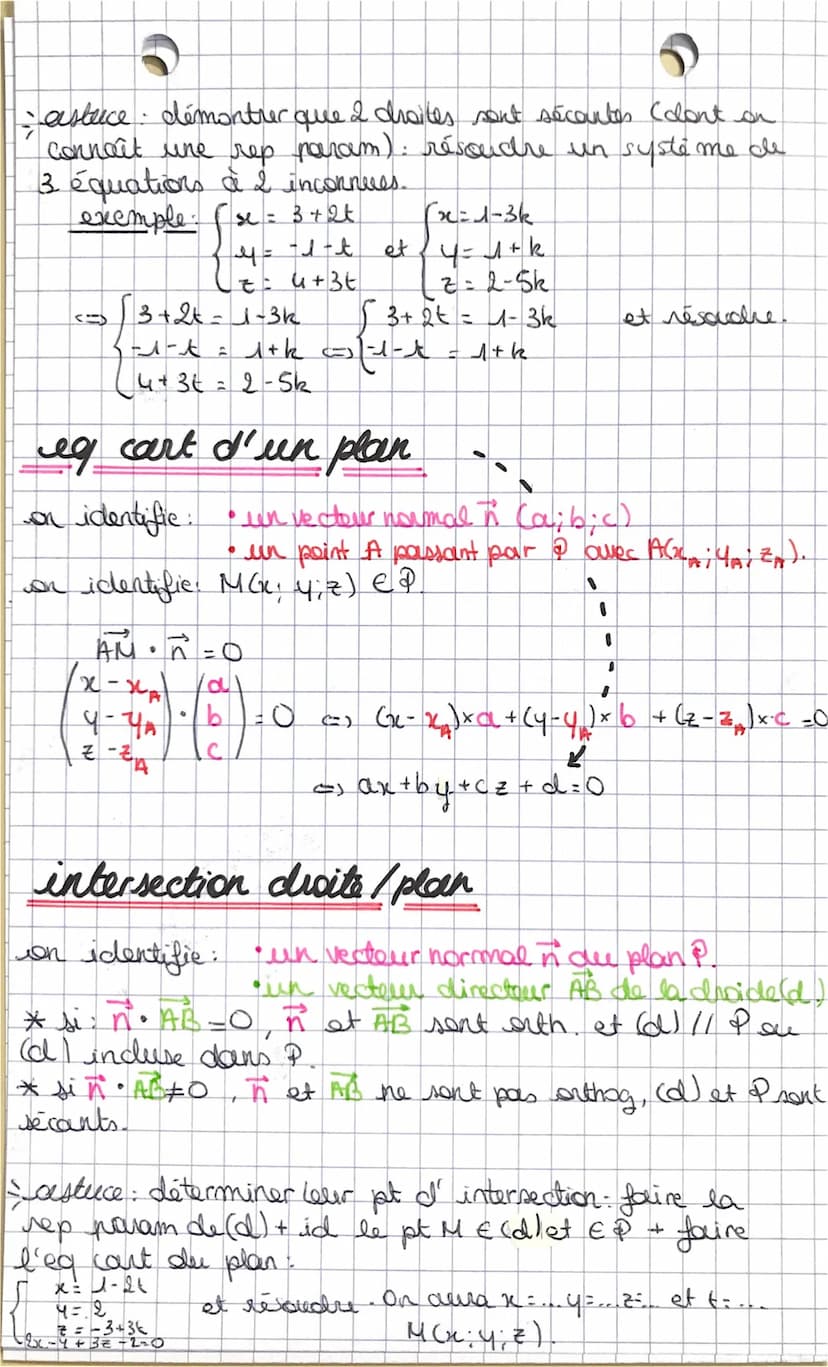 astuce : démontrer que 2 droites sont sécantes (dont on
connaît une rep param) : résoudre un système de
3 équations à 2 inconnues.
exemple : { x = 3 + 2t { x = 1 - 3k
{ y = -1 - t et { y = 1 + k
{ z = 4 + 3t { z = 2 - 5k
<=> { 3 + 2t = 1 - 3k { 3 + 2t = 1 - 3k et résoudre.
{ -1 - t = 1 + k <=> { -1 - t = 1 + k
{ 4 + 3t = 2 - 5k
eq cart d'un plan
on identifie : • un vecteur normal n⃗ (a ; b ; c)
• un point A passant par P avec A(x_A ; y_A ; z_A).
on identifie : M(x ; y ; z) ∈ P.
AM⃗ · n⃗ = 0
(x - x_A) (a)
(y - y_A) · (b) = 0 <=> (x - x_A) × a + (y - y_A) × b + (z - z_A) × c = 0
(z - z_A) (c)
<=> ax + by + cz + d = 0
intersection droite / plan
on identifie : • un vecteur normal n⃗ du plan P.
• un vecteur directeur AB⃗ de la droide (d)
* si : n⃗ · AB⃗ = 0, n⃗ et AB⃗ sont orth. et (d) // P ou
(d) incluse dans P.
* si n⃗ · AB⃗ ≠ 0, n⃗ et AB⃗ ne sont pas orthog, (d) et P sont
sécants.
astuce : déterminer leur pt d'intersection : faire la
rep param de (d) + id le pt M ∈ (d) et ∈ P + faire
l'eq cart du plan :
{ x = 1 - 2t
{ y = 2 et résoudre. On aura x = ... y = ... z = ... et t = ...
{ z = -3 + 3t
{ 2x - y + 3z - 2 = 0 M(x ; y ; z).